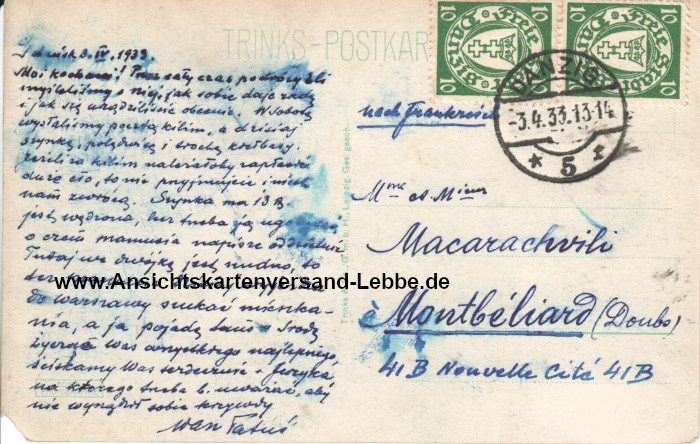 Gdańsk 3. IV. 1933.
Moi kochani! Przez cały czas podróży
myślaliśmy o niej, jak sobie daje radę
i jak się urządziliście obecnie. W sobotę
wysłaliśmy pocztą kilim, a dzisiaj
szynkę, polędwicę i trochę kiełbasy.
Jeżeli za kilim należałoby zapłacić
duże cło, to nie przyjmujcie i niech
nam zwrócą. Szynka
jest wędzona, lecz trzeba ją ugotować
o czem mamusia napisze oddzielnie
Tutaj we dwójkę jest nudno, to
do Warszawy szukać mieszka-
nia, a ja pojadę w środę
Życzę Was wszystkiego najlepszego
ściskamy Was serdecznie i Jerzyka
na którego trzeba b. uważać, aby
nie wyrządził sobie krzywdy
Wasz Tatuś
TRINKS-POSTKAR
10 Freie Stadt Danzig 10
10 Freie Stadt Danzig 10
DANZIG
-3.4.33.13-14
* 5 f
nach Frankreich
Mme et Mieur
Macarachvili
à Montbéliard (Doubs)
41B Nouvelle Cité 41B
Leipzig Ges. gesch.
www.Ansichtskartenversand-Lebbe.de